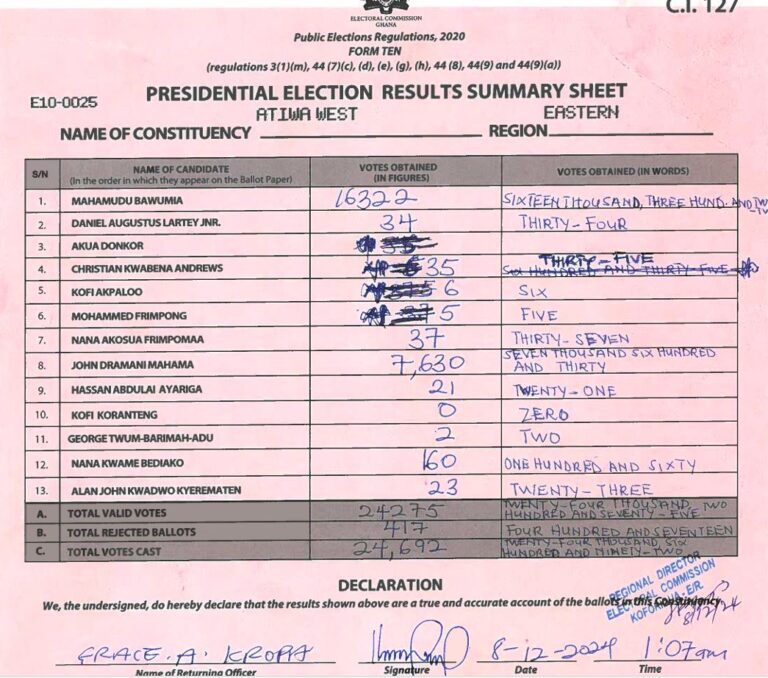 C.I. 127
ELECTORAL COMMISSION
GHANA
Public Elections Regulations, 2020
FORM TEN
(regulations 3(1)(m), 44 (7)(c), (d), (e), (g), (h), 44 (8), 44(9) and 44(9)(a))
E10-0025 PRESIDENTIAL ELECTION RESULTS SUMMARY SHEET
ATIWA WEST EASTERN
NAME OF CONSTITUENCY REGION
S/N NAME OF CANDIDATE (In the order in which they appear on the Ballot Paper) VOTES OBTAINED (IN FIGURES) VOTES OBTAINED (IN WORDS)
1. MAHAMUDU BAWUMIA 16322 SIXTEEN THOUSAND, THREE HUND. AND TW
2. DANIEL AUGUSTUS LARTEY JNR. 34 THIRTY-FOUR
3. AKUA DONKOR
4. CHRISTIAN KWABENA ANDREWS 35 THIRTY-FIVE
SIX HUNDRED AND THIRTY-FIVE
5. KOFI AKPALOO 6 SIX
6. MOHAMMED FRIMPONG 5 FIVE
7. NANA AKOSUA FRIMPOMAA 37 THIRTY-SEVEN
8. JOHN DRAMANI MAHAMA 7,630 SEVEN THOUSAND SIX HUNDRED AND THIRTY
9. HASSAN ABDULAI AYARIGA 21 TWENTY-ONE
10. KOFI KORANTENG 0 ZERO
11. GEORGE TWUM-BARIMAH-ADU 2 TWO
12. NANA KWAME BEDIAKO 160 ONE HUNDRED AND SIXTY
13. ALAN JOHN KWADWO KYEREMATEN 23 TWENTY-THREE
A. TOTAL VALID VOTES 24275 TWENTY-FOUR THOUSAND, TWO HUNDRED AND SEVENTY-FIVE
B. TOTAL REJECTED BALLOTS 417 FOUR HUNDRED AND SEVENTEEN
C. TOTAL VOTES CAST 24,692 TWENTY-FOUR THOUSAND SIX HUNDRED AND NINETY-TWO
DECLARATION
We, the undersigned, do hereby declare that the results shown above are a true and accurate account of the ballots in this Constituency.
REGIONAL DIRECTOR
ELECTORAL COMMISSION
8/12/24
GRACE. A. KROPA 8-12-2024 1:07am
Name of Returning Officer Signature Date Time